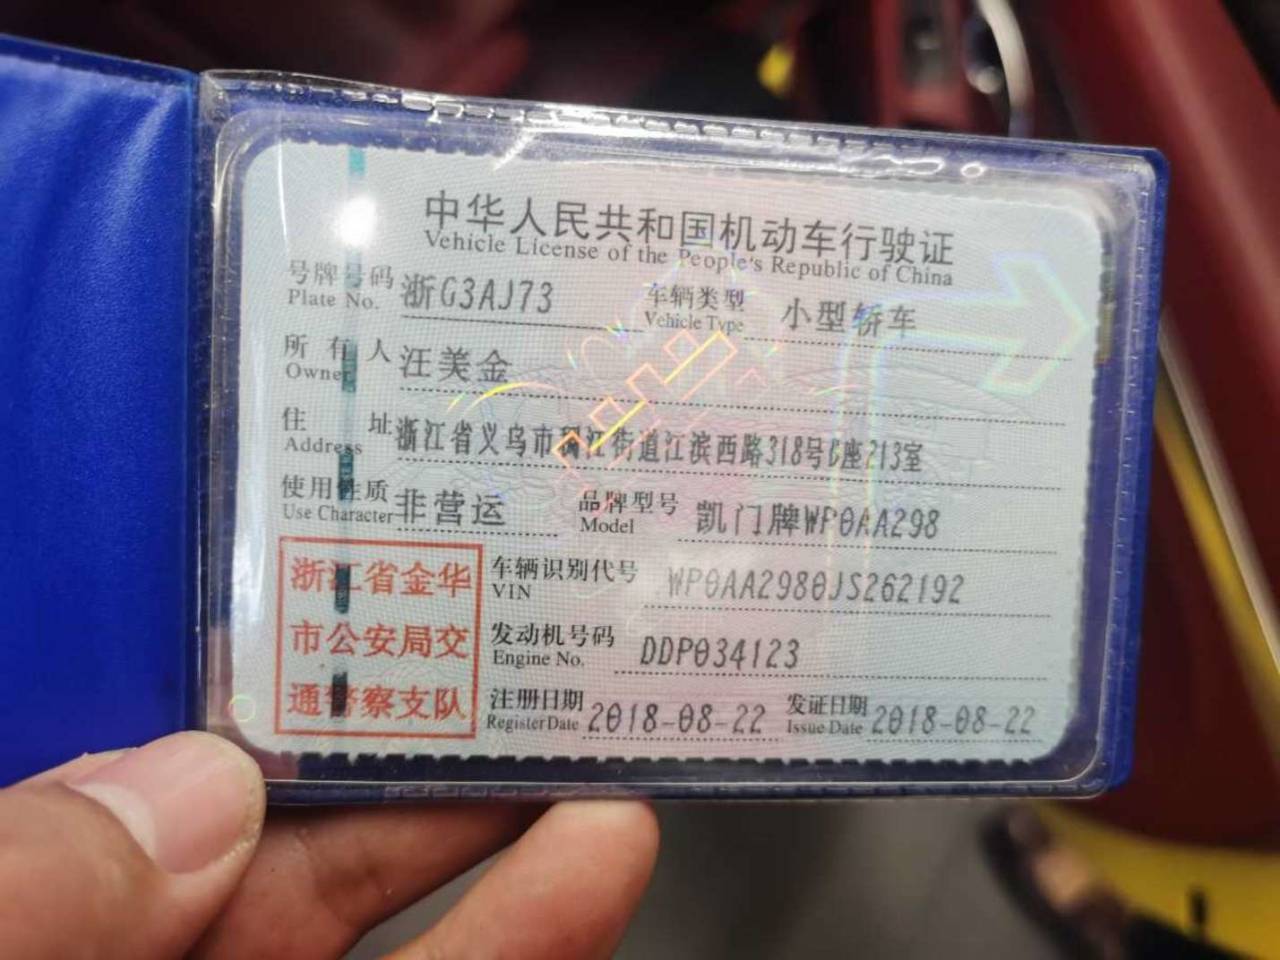 中华人民共和国机动车行驶证
Vehicle License of the People's Republic of China
号牌号码 浙G3AJ73 车辆类型 小型轿车
Plate No. Vehicle Type
所有人 汪美金
Owner
住址 浙江省义乌市稠江街道江滨西路318号C座213室
Address
使用性质 非营运 品牌型号 凯门牌WP0AA298
Use Character Model
浙江省金华
市公安局交
通警察支队
车辆识别代号 WP0AA2980JS262192
VIN
发动机号码 DDP034123
Engine No.
注册日期 2018-08-22 发证日期 2018-08-22
Register Date Issue Date